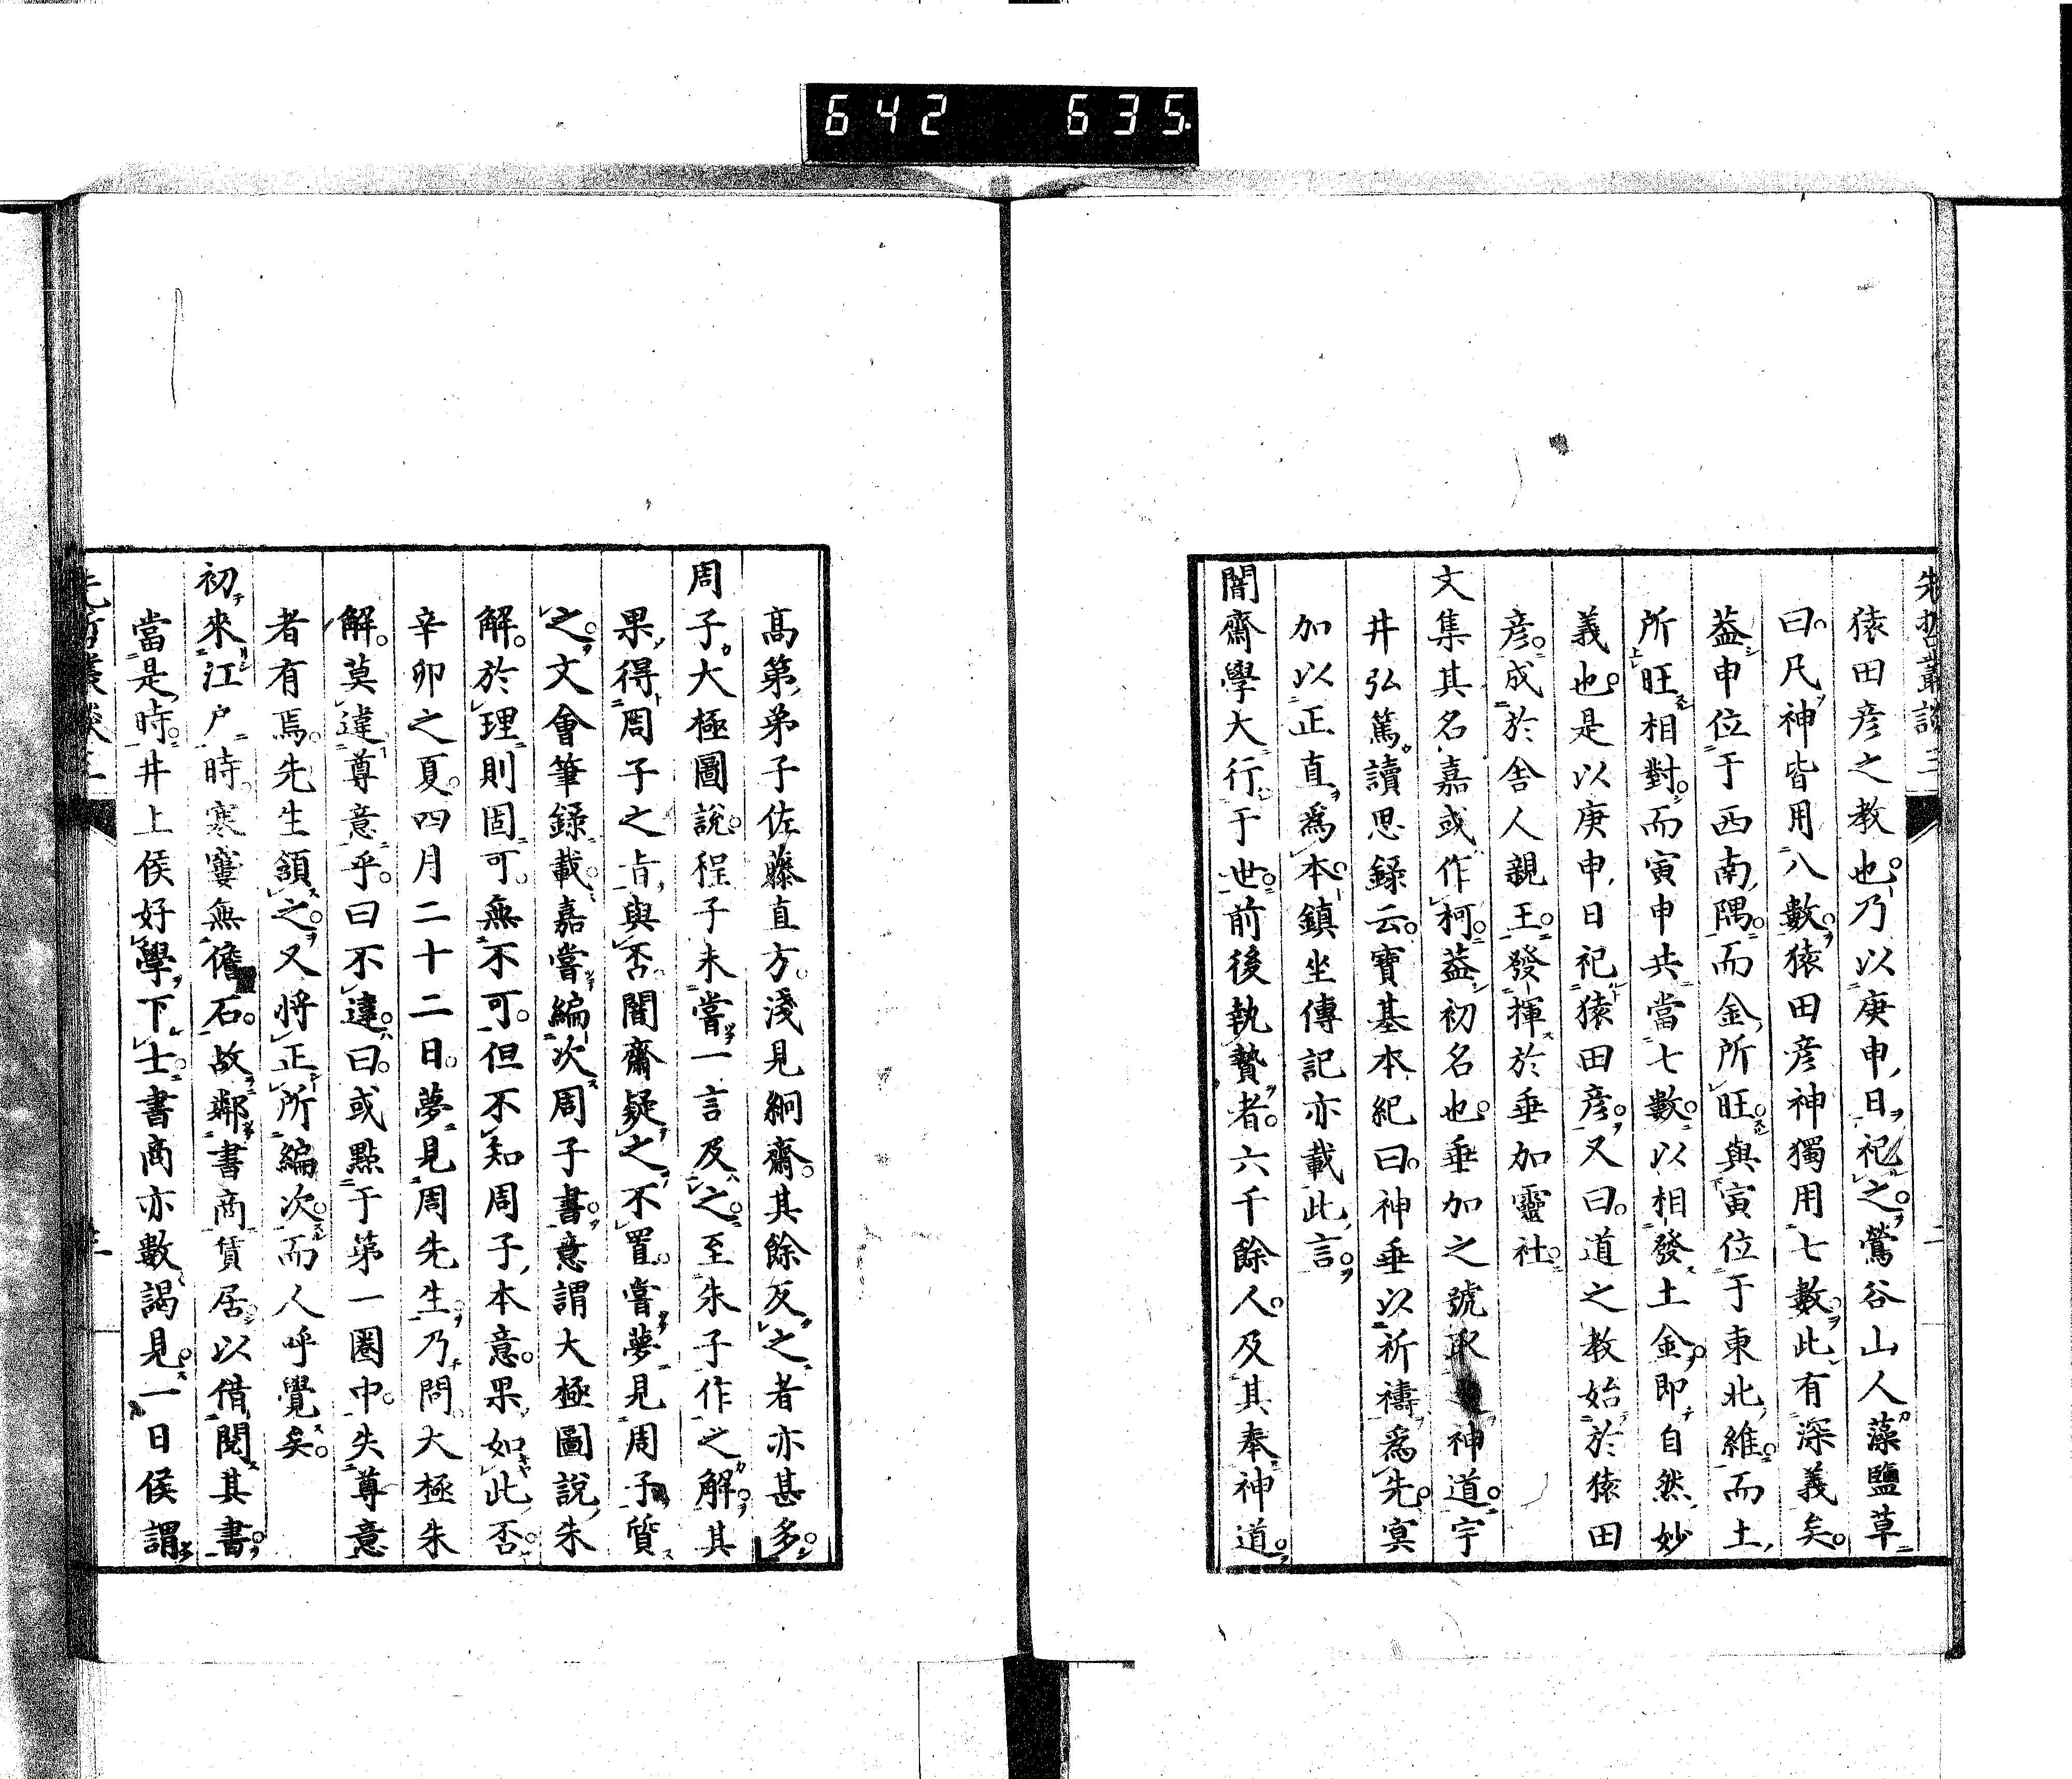 642 635
先哲叢談三
猿田彦之教也。乃以庚申日祀之。鶯谷山人藻鹽草
曰。凡神皆用八數。猿田彦神獨用七數。此有深義矣。
葢申位于西南隅。而金所旺。與寅位于東北維。而土
所旺相對。而寅申共當七數。以相發土金。即自然妙
義也。是以庚申日祀猿田彦。又曰。道之教始於猿田
彦。成於舍人親王。發揮於垂加靈社。
文集其名嘉或作柯。葢初名也。垂加之號取神道。宇
井弘篤讀思錄云。寶基本紀曰。神垂以祈禱爲先。㝠
加以正直爲本。鎮坐傳記亦載此言。
闇齋學大行于世。前後執贄者。六千餘人。及其奉神道。
高第弟子佐藤直方。淺見絅齋。其餘反之者亦甚多。
周子大極圖說。程子未嘗一言及之。至朱子作之解。其
果得周子之旨與否。闇齋疑之不置。嘗夢見周子質
之。文會筆錄載。嘉嘗編次周子書。意謂大極圖說朱
解。於理則固可。無不可。但不知周子本意。果如此否。
辛卯之夏。四月二十二日。夢見周先生。乃問大極朱
解。莫違尊意乎。曰不違。曰。或點于第一圈中。失尊意
者有焉。先生頷之。又將正所編次。而人呼覺矣。
初來江戶時。寒窶無儋石。故鄰書商賃居。以借閱其書。
當是時。井上侯好學下士。書商亦數謁見。一日侯謂
先哲叢談三